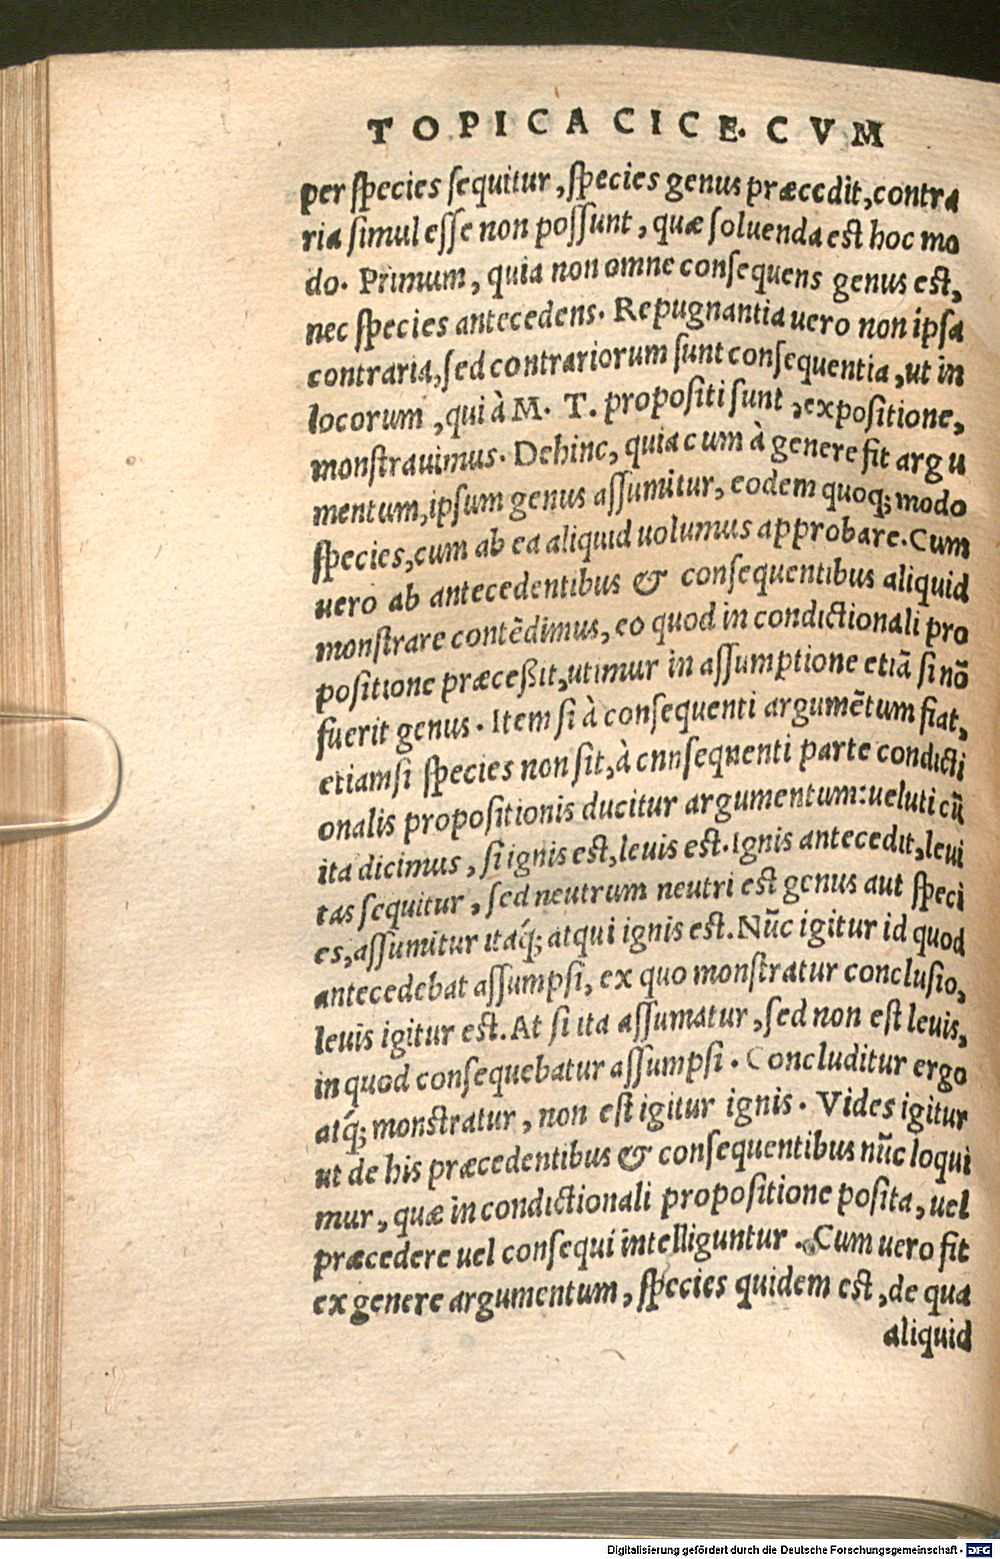 TOPICA CICE. CVM
per species sequitur, species genus præcedit, contra
ria simul esse non possunt, quæ soluenda est hoc mo
do. Primum, quia non omne consequens genus est,
nec species antecedens. Repugnantia uero non ipsa
contraria, sed contrariorum sunt consequentia, ut in
locorum, qui à M. T. propositi sunt, expositione,
monstrauimus. Dehinc, quia cum à genere fit argu
mentum, ipsum genus assumitur, eodem quoq; modo
species, cum ab ea aliquid uolumus approbare. Cum
uero ab antecedentibus & consequentibus aliquid
monstrare contẽdimus, eo quod in condictionali pro
positione præceßit, utimur in assumptione etiã si nõ
fuerit genus. Item si à consequenti argumẽtum fiat,
etiamsi species non sit, à cnnsequenti parte condicti
onalis propositionis ducitur argumentum: ueluti cũ
ita dicimus, si ignis est, leuis est. Ignis antecedit, leui
tas sequitur, sed neutrum neutri est genus aut speci
es, assumitur itaq́; atqui ignis est. Nũc igitur id quod
antecedebat assumpsi, ex quo monstratur conclusio,
leuis igitur est. At si ita assumatur, sed non est leuis,
in quod consequebatur assumpsi. Concluditur ergo
atq́; monstratur, non est igitur ignis. Vides igitur
ut de his præcedentibus & consequentibus nũc loqui
mur, quæ in condictionali propositione posita, uel
præcedere uel consequi intelliguntur. Cum uero fit
ex genere argumentum, species quidem est, de qua
aliquid
Digitalisierung gefördert durch die Deutsche Forschungsgemeinschaft - DFG